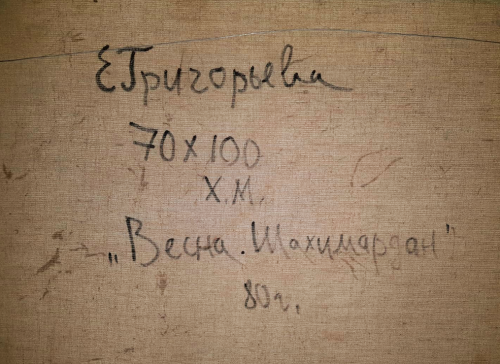 ЕГригорьева
70х100
Х.М.
„Весна. Шахимардан"
80г.